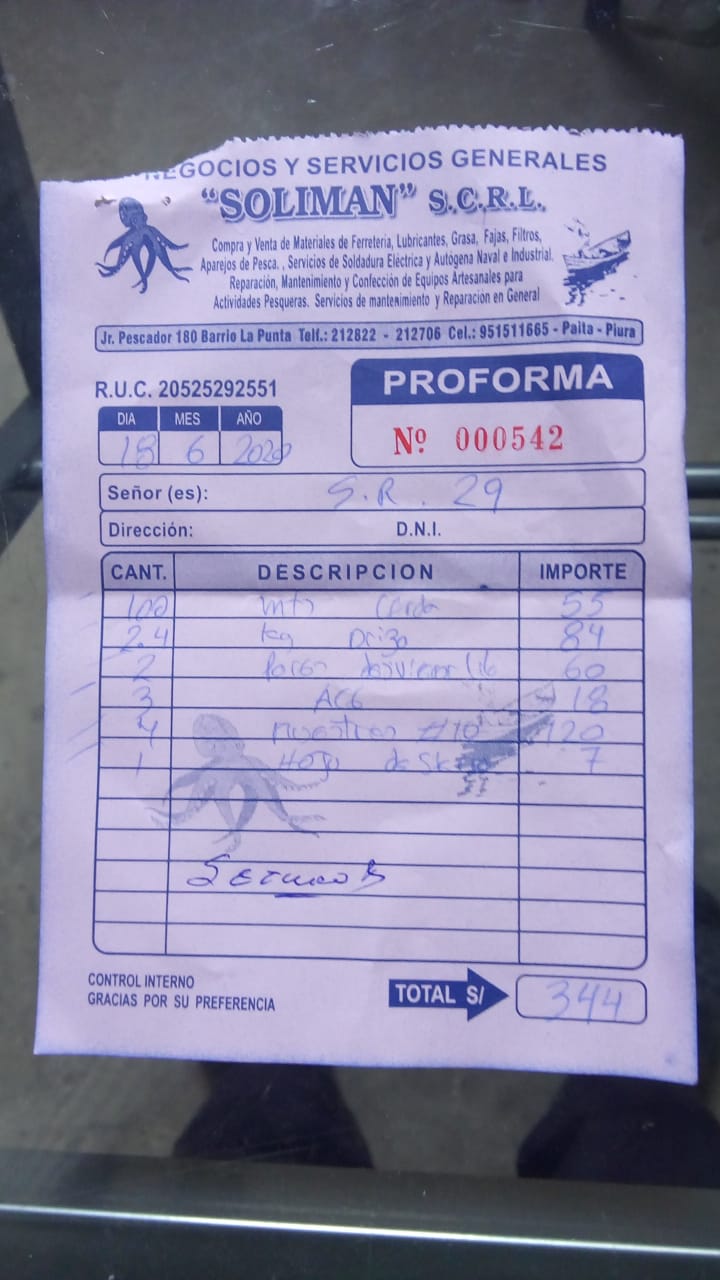 NEGOCIOS Y SERVICIOS GENERALES
"SOLIMAN" S.C.R.L.
Compra y Venta de Materiales de Ferreteria, Lubricantes, Grasa, Fajas, Filtros,
Aparejos de Pesca. , Servicios de Soldadura Eléctrica y Autógena Naval e Industrial.
Reparación, Mantenimiento y Confección de Equipos Artesanales para
Actividades Pesqueras. Servicios de mantenimiento y Reparación en General
Jr. Pescador 180 Barrio La Punta Telf.: 212822 - 212706 Cel.: 951511665 - Paita - Piura
R.U.C. 20525292551
PROFORMA
DIA MES AÑO
18 6 2020
Nº 000542
Señor (es): S.R. 29
Dirección: D.N.I.
CANT. DESCRIPCION IMPORTE
100 mts 55
2.4 kg 84
2 60
3 18
4 #10 120
1 Hoja de 7
CONTROL INTERNO
GRACIAS POR SU PREFERENCIA
TOTAL S/ 344